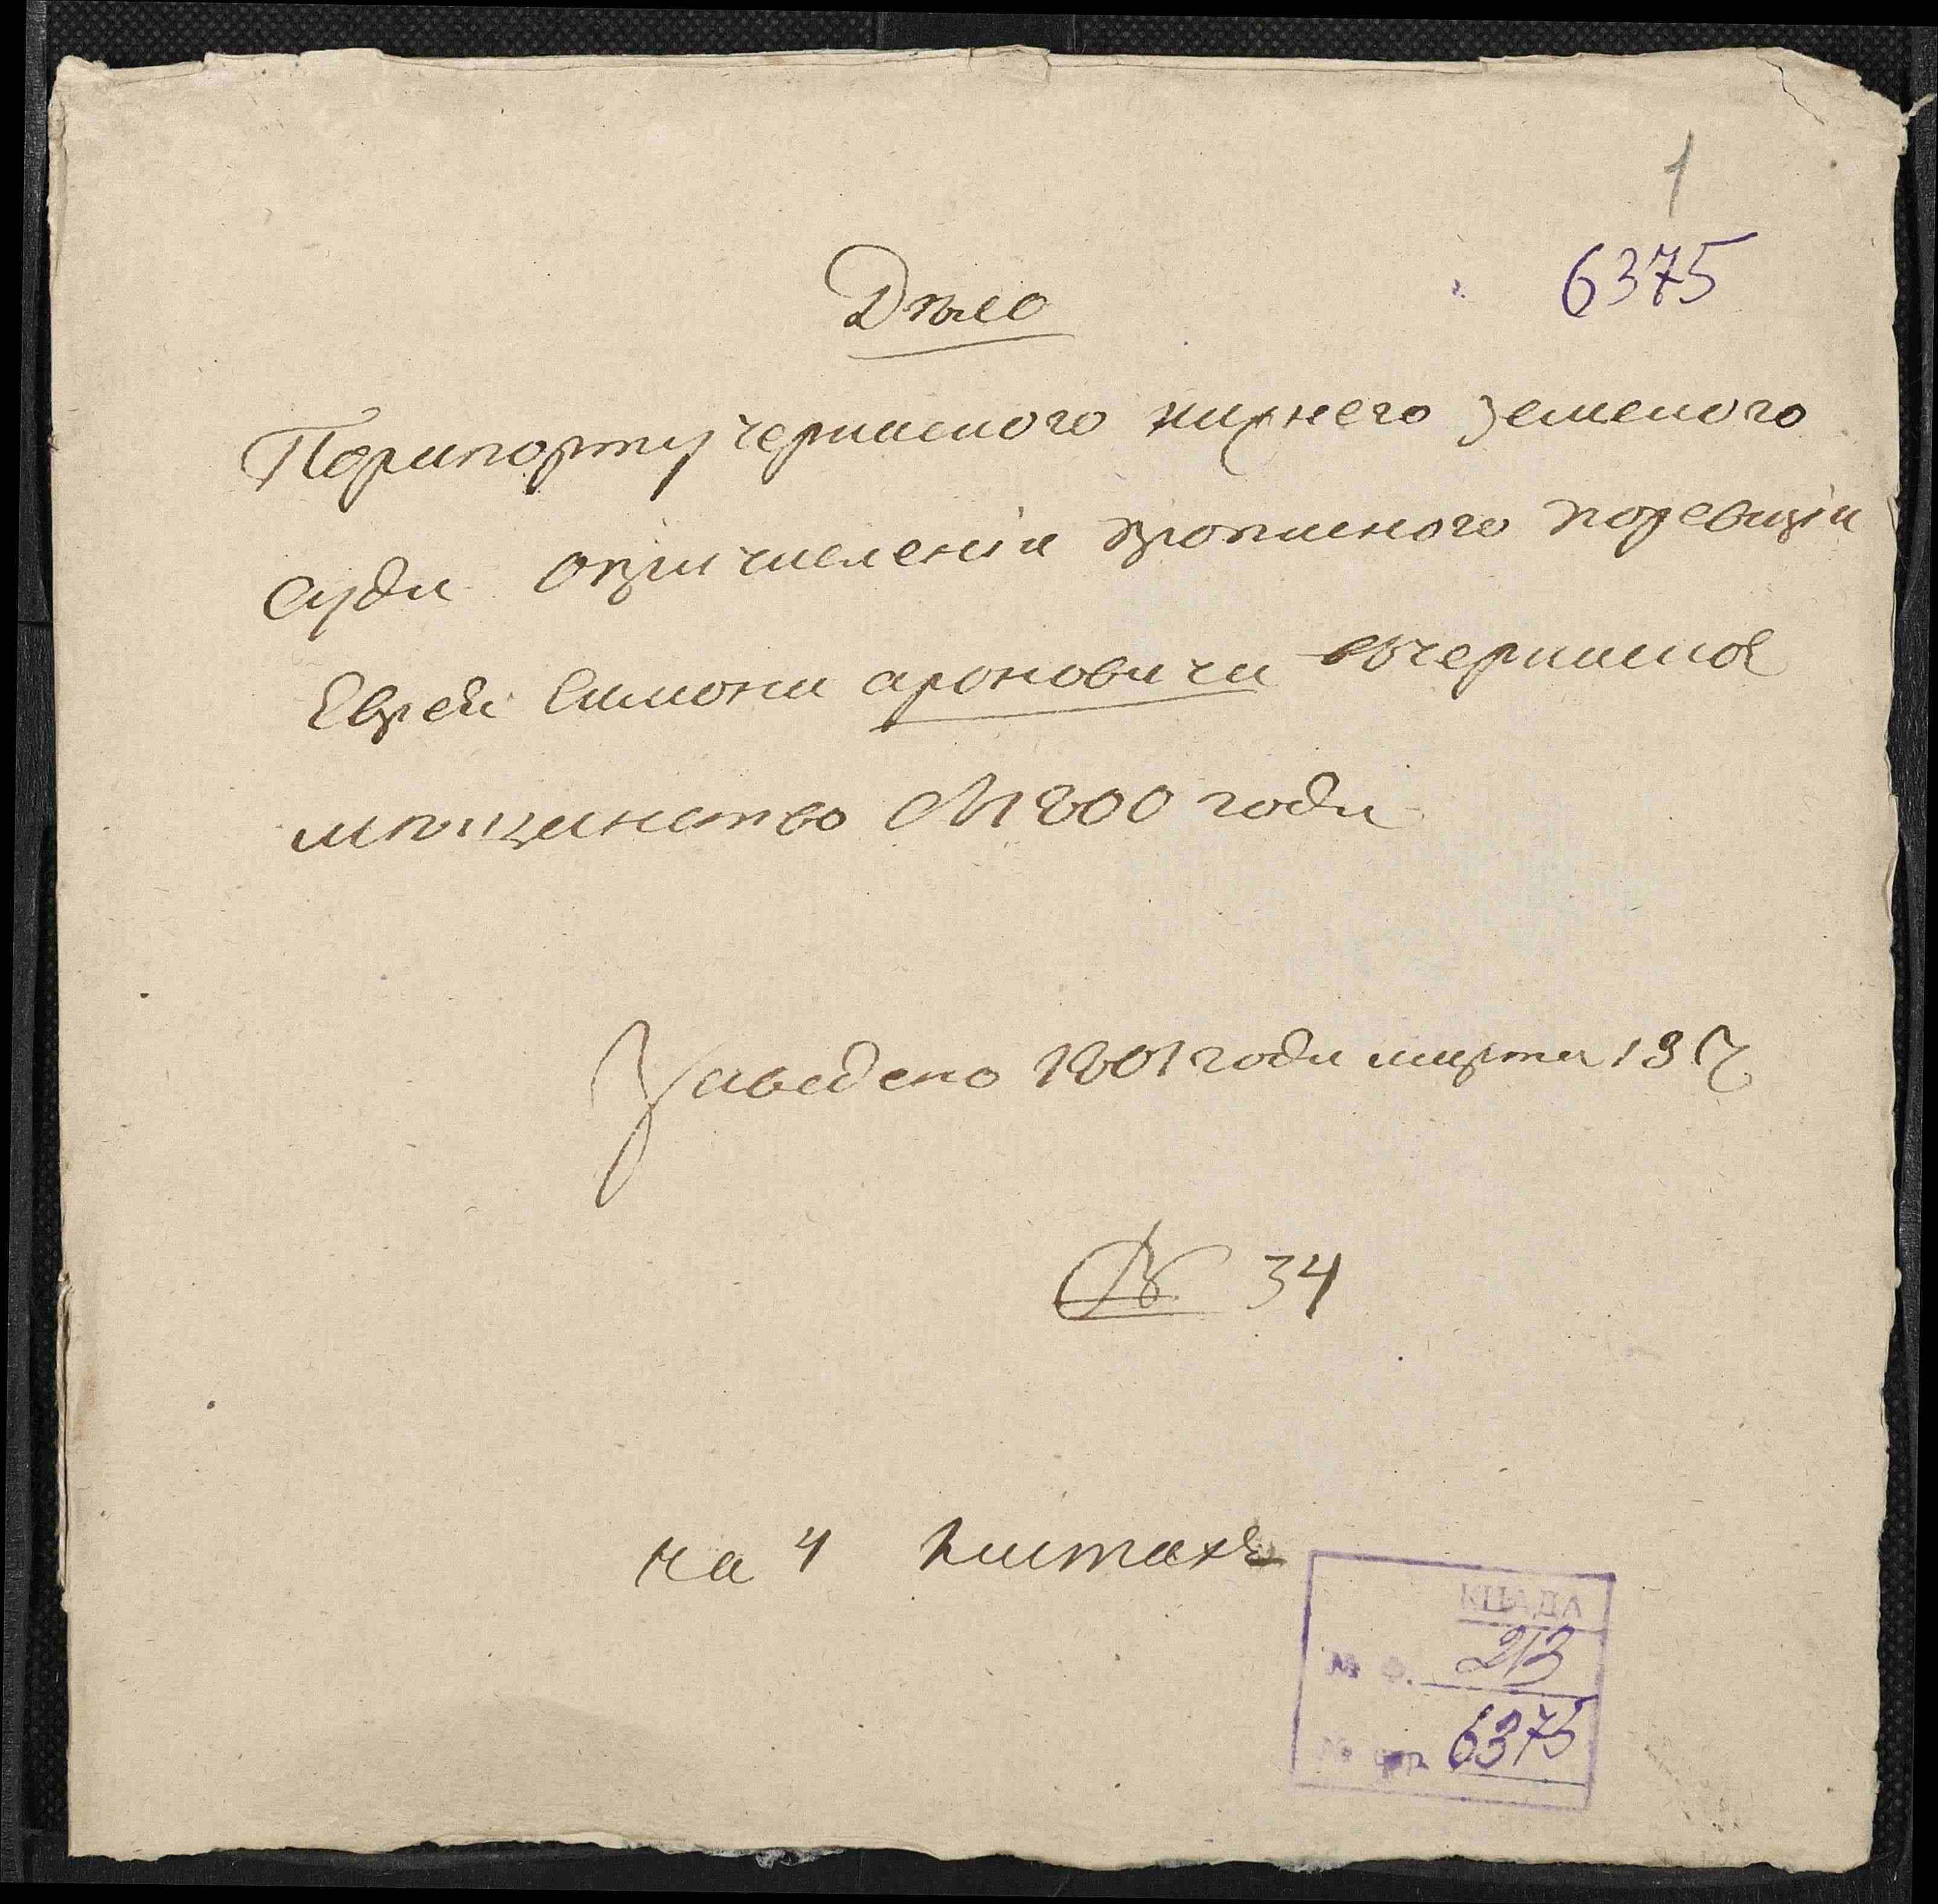 1
6375
Дѣло
Порапорту черкаского нижнего земского
суда опричисленіи прописного поревизіи
Еврея Симона ароновича вчеркаское
мѣщанство с 1800 года
Заведено 1801 года марта 13 ч
№ 34
на 4 листахъ
КЦАДА
№ Ф. 213
№ 6375